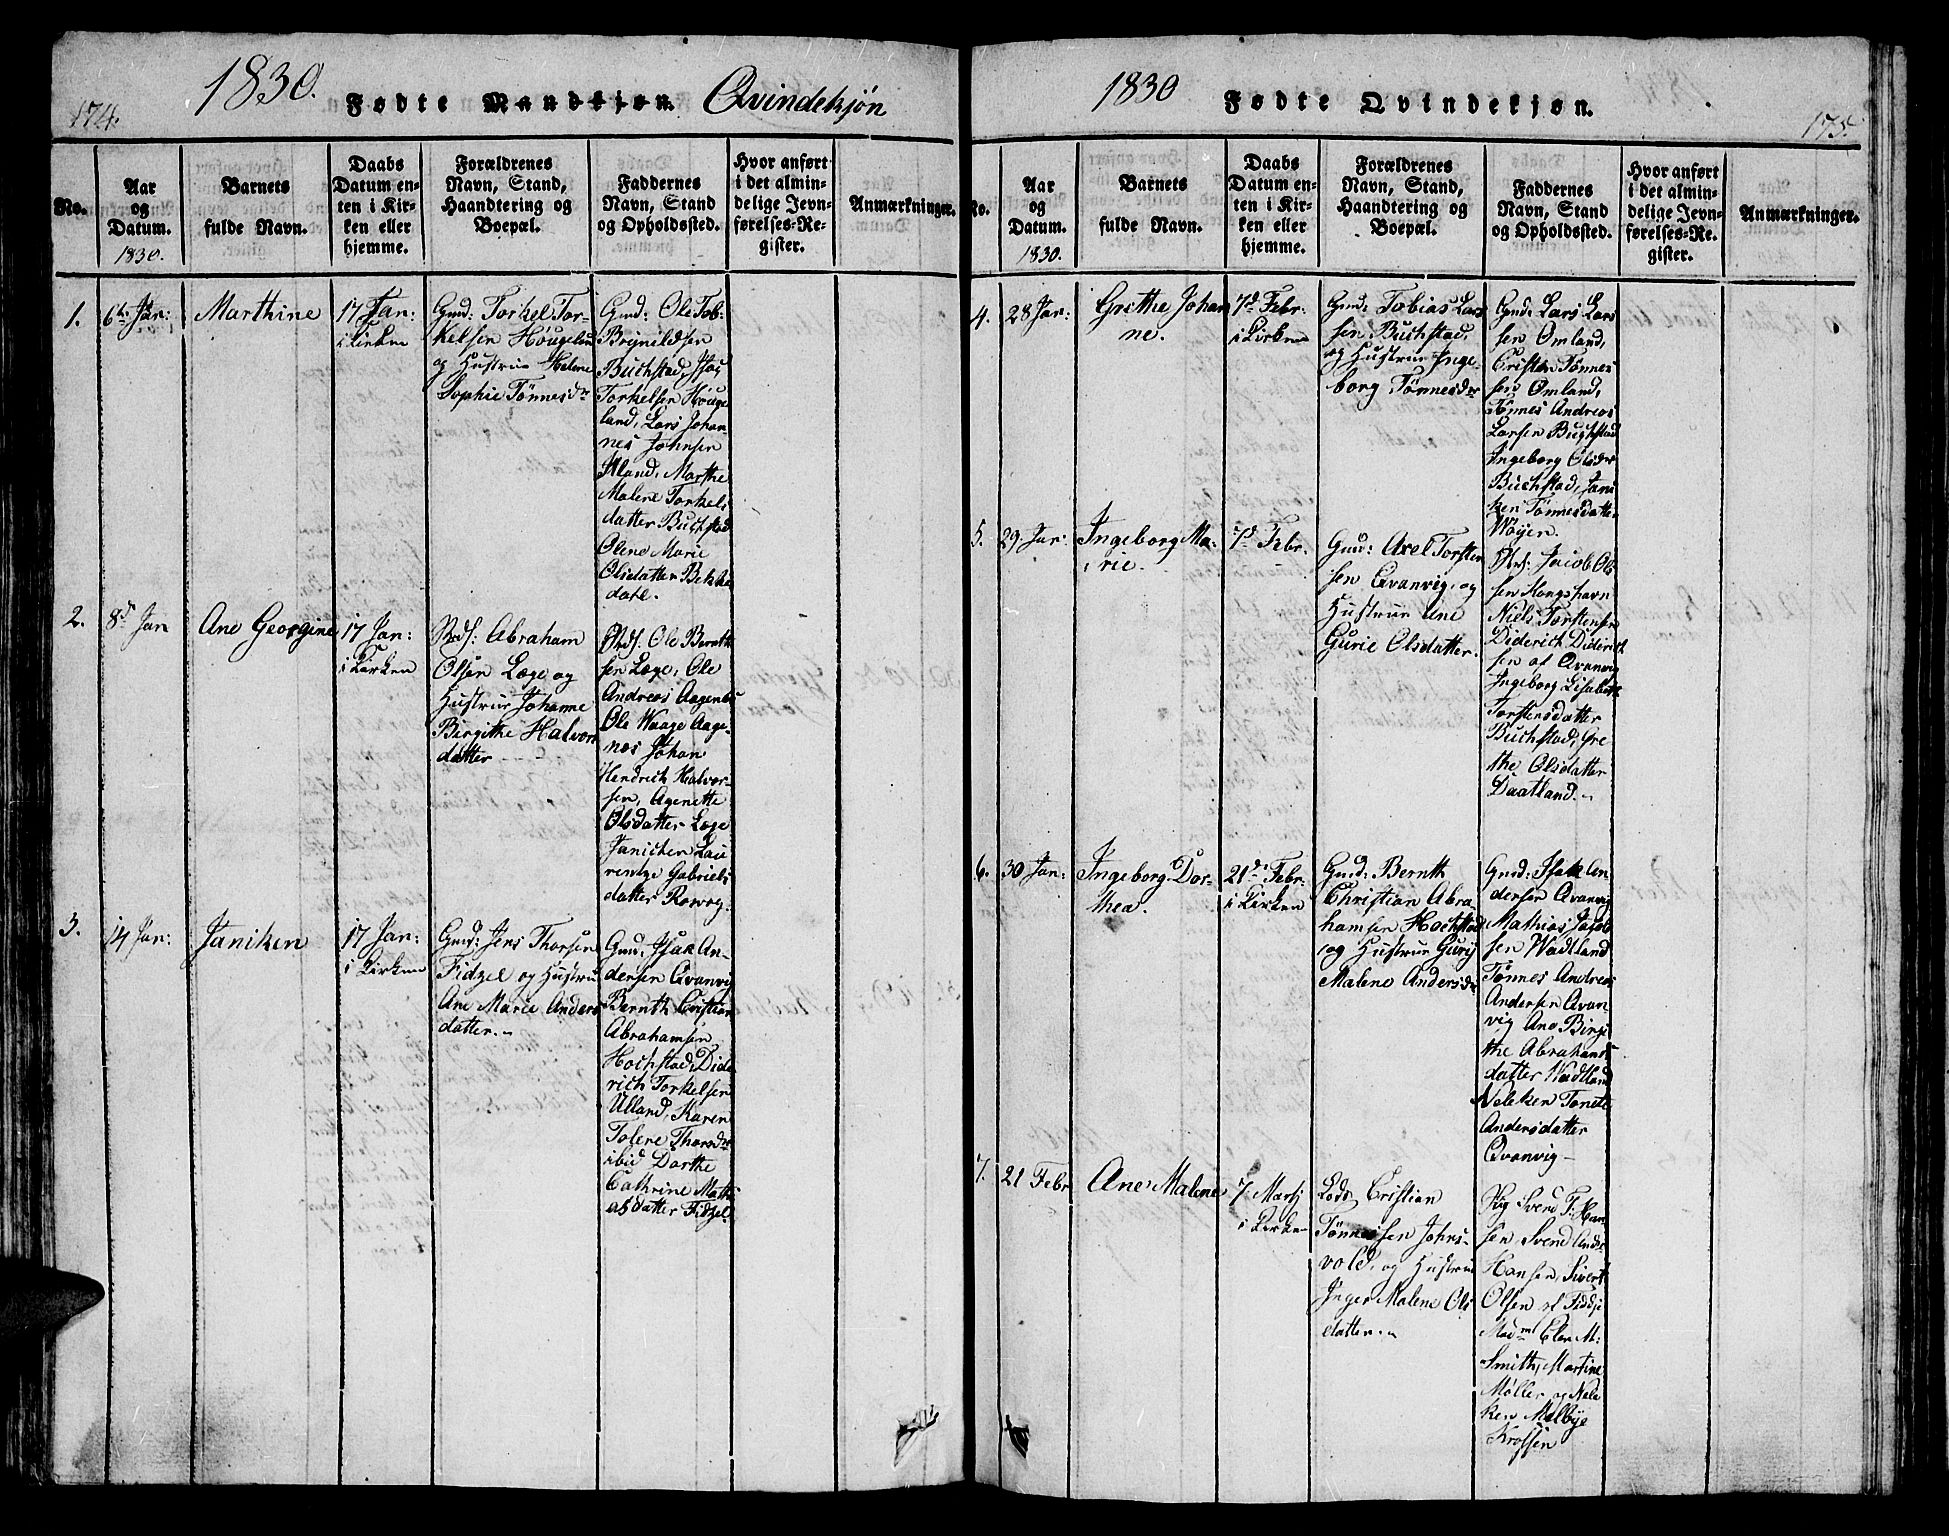 174.
1830.
Fødte Mandkjøn. Qvindekjøn
No.
Aar
og
Datum.
1830.
Barnets
fulde Navn.
Daabs
Datum en-
ten i Kir-
ken eller
hjemme.
Forældrenes
Navn, Stand,
Haandtering og
Boepæl.
Faddernes
Navn, Stand
og Opholdssted.
Hvor anført
i det almin-
delige Jevn-
førelses-Re-
gister.
Anmærkninger.
1.
6te Jan:
Marthine
17 Jan:
i Kirken
Gmd: Torkel Tor-
kelsen Höugelan
og Hustrue Helene
Sophie Tönnesdr
Gmd: Ole Tob:
Brynildsen
Buchstad, Isaç
Torkelsen Höuge
land, Lars Johan
nes Johnsen
Marthe
Malene Torkels
datter Buchstad
Olene Marie
Olsdatter Bekke
dahl.
2.
8de Jan
Ane Georgine
17 Jan:
i Kirken
Abraham
Olsen Læge og
Hustrue Johanne
Birgithe Halvors
datter
Ole Bernth
sen Læge, Ole
Andreas Aagenæs
Ole Waage Aage-
næs Johan
Hendrich Halvor-
sen, Agenette
Olsdatter Læge
Janichen Lau
rentze Gabriels
datter Rosvog.
3.
14 Jan:
Janiken
17 Jan:
i Kirken
Gmd: Jens Thorsen
Fidzel og Hustru
Ane Marie Anders
datter.
Gmd: Isak An-
dersen Qvanvig
Bernth Cristian
Abrahamsen
Hochstad, Dide
rich Torkelsen
Ulland, Karen
Tolene Thorsdr
ibid Dorthe
Cathrine Mathi
asdatter Fidzel.
1830
Fødte Qvindekjøn.
175.
No.
Aar
og
Datum.
1830.
Barnets
fulde Navn.
Daabs
Datum en-
ten i Kir-
ken eller
hjemme.
Forældrenes
Navn, Stand,
Haandtering og
Boepæl.
Faddernes
Navn, Stand
og Opholdssted.
Hvor anført
i det almin-
delige Jevn-
førelses-Re
gister.
Anmærkninger.
4.
28 Jan:
Grethe Johan
ne.
7d Febr:
i Kirken
Gmd: Tobias Lars
sen Buchstad,
og Hustrue Inge-
borg Tönnesdr
Gmd: Lars Lars
sen Omland,
Cristen Tönnes
sen Omland,
Tönnes Andreas
Larsen Bughstad
Ingeborg Olsdr
Buchstad, Jani
ken Tönnesdatter
Woyen.
5.
29 Jan:
Ingeborg Ma-
rie.
7d Febr.
Gmd: Axel Torsten
sen Qvanvig, og
Hustrue Ane
Gurie Olsdatter.
Jacob Ol-
sen Kongshavn
Niels Torstensen
Diderich Diderich
sen af Qvanvig
Ingeborg Lisabeth
Torstensdatter
Buchstad, Gre
the Olsdatter
Daatland.
6.
30 Jan:
Ingeborg Dor-
thea.
21d Febr:
i Kirken
Gmd: Bernth
Christian Abra-
hamsen Hochstad
og Hustrue Gurij
Malene Andersdr
Gmd: Isak An-
dersen Qvanvig
Mathias Jacob
sen Wadtland
Tönnes Andreas
Andersen Qvan-
vig Ane Birgi
the Abrahams
datter Wadtland
Neleken Tonete
Andersdatter
Qvanvig
7.
21 Febr
Ane Malene
7 Martj
i Kirken
Lods Cristian
Tönnessen Johns-
vold, og Hustrue
Inger Malene Ols
datter.
Svend T: Han
sen, Svend Andr
Hansen, Sivert
Olsen
Madml Elen M:
Smith, Martine
Møller og Nele
ken Melbye
Krossen